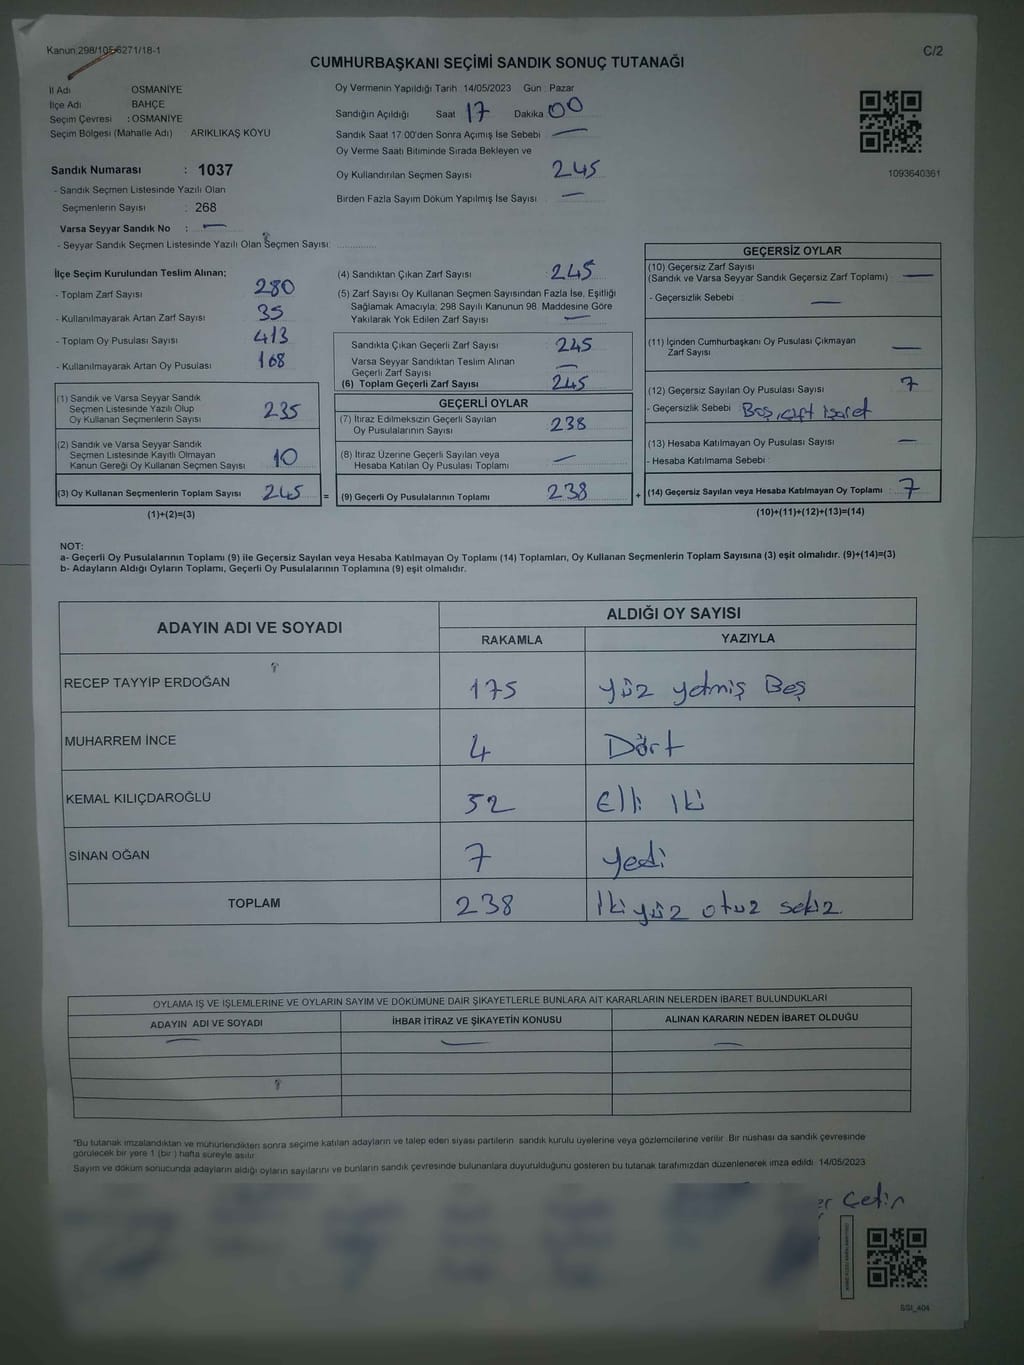 Kanun:298/105-6271/18-1
C/2
CUMHURBAŞKANI SEÇİMİ SANDIK SONUÇ TUTANAĞI
İl Adı OSMANİYE
İlçe Adı BAHÇE
Seçim Çevresi : OSMANİYE
Seçim Bölgesi (Mahalle Adı) ARIKLIKAŞ KÖYÜ
Sandık Numarası : 1037
- Sandık Seçmen Listesinde Yazılı Olan
Seçmenlerin Sayısı : 268
Varsa Seyyar Sandık No : —
- Seyyar Sandık Seçmen Listesinde Yazılı Olan Seçmen Sayısı:
Oy Vermenin Yapıldığı Tarih 14/05/2023 Gün : Pazar
Sandığın Açıldığı Saat 17 Dakika 00
Sandık Saat 17:00'den Sonra Açımış İse Sebebi —
Oy Verme Saati Bitiminde Sırada Bekleyen ve
Oy Kullandırılan Seçmen Sayısı 245
Birden Fazla Sayım Döküm Yapılmış İse Sayısı —
1093640361
İlçe Seçim Kurulundan Teslim Alınan;
- Toplam Zarf Sayısı 280
- Kullanılmayarak Artan Zarf Sayısı 35
- Toplam Oy Pusulası Sayısı 413
- Kullanılmayarak Artan Oy Pusulası 168
(1) Sandık ve Varsa Seyyar Sandık
Seçmen Listesinde Yazılı Olup
Oy Kullanan Seçmenlerin Sayısı 235
(2) Sandık ve Varsa Seyyar Sandık
Seçmen Listesinde Kayıtlı Olmayan
Kanun Gereği Oy Kullanan Seçmen Sayısı 10
(3) Oy Kullanan Seçmenlerin Toplam Sayısı 245
(1)+(2)=(3)
(4) Sandıktan Çıkan Zarf Sayısı 245
(5) Zarf Sayısı Oy Kullanan Seçmen Sayısından Fazla İse, Eşitliği
Sağlamak Amacıyla, 298 Sayılı Kanunun 98. Maddesine Göre
Yakılarak Yok Edilen Zarf Sayısı —
Sandıkta Çıkan Geçerli Zarf Sayısı 245
Varsa Seyyar Sandıktan Teslim Alınan
Geçerli Zarf Sayısı —
(6) Toplam Geçerli Zarf Sayısı 245
GEÇERLİ OYLAR
(7) İtiraz Edilmeksizin Geçerli Sayılan
Oy Pusulalarının Sayısı 238
(8) İtiraz Üzerine Geçerli Sayılan veya
Hesaba Katılan Oy Pusulası Toplamı —
= (9) Geçerli Oy Pusulalarının Toplamı 238
GEÇERSİZ OYLAR
(10) Geçersiz Zarf Sayısı
(Sandık ve Varsa Seyyar Sandık Geçersiz Zarf Toplamı) —
- Geçersizlik Sebebi —
(11) İçinden Cumhurbaşkanı Oy Pusulası Çıkmayan
Zarf Sayısı —
(12) Geçersiz Sayılan Oy Pusulası Sayısı 7
- Geçersizlik Sebebi Boş, çift işaret
(13) Hesaba Katılmayan Oy Pusulası Sayısı —
- Hesaba Katılmama Sebebi
+ (14) Geçersiz Sayılan veya Hesaba Katılmayan Oy Toplamı 7
(10)+(11)+(12)+(13)=(14)
NOT:
a- Geçerli Oy Pusulalarının Toplamı (9) ile Geçersiz Sayılan veya Hesaba Katılmayan Oy Toplamı (14) Toplamları, Oy Kullanan Seçmenlerin Toplam Sayısına (3) eşit olmalıdır. (9)+(14)=(3)
b- Adayların Aldığı Oyların Toplamı, Geçerli Oy Pusulalarının Toplamına (9) eşit olmalıdır.
ADAYIN ADI VE SOYADI
ALDIĞI OY SAYISI
RAKAMLA YAZIYLA
RECEP TAYYİP ERDOĞAN 175 Yüz yetmiş Beş
MUHARREM İNCE 4 Dört
KEMAL KILIÇDAROĞLU 52 Elli iki
SİNAN OĞAN 7 yedi
TOPLAM 238 İki yüz otuz sekiz
OYLAMA İŞ VE İŞLEMLERİNE VE OYLARIN SAYIM VE DÖKÜMÜNE DAİR ŞİKAYETLERLE BUNLARA AİT KARARLARIN NELERDEN İBARET BULUNDUKLARI
ADAYIN ADI VE SOYADI İHBAR İTİRAZ VE ŞİKAYETİN KONUSU ALINAN KARARIN NEDEN İBARET OLDUĞU
— — —
"Bu tutanak imzalandıktan ve mühürlendikten sonra seçime katılan adayların ve talep eden siyasi partilerin sandık kurulu üyelerine veya gözlemcilerine verilir. Bir nüshası da sandık çevresinde
görülecek bir yere 1 (bir) hafta süreyle asılır.
Sayım ve döküm sonucunda adayların aldığı oyların sayılarını ve bunların sandık çevresinde bulunanlara duyurulduğunu gösteren bu tutanak tarafımızdan düzenlenerek imza edildi. 14/05/2023
er Çetin
SSI_404